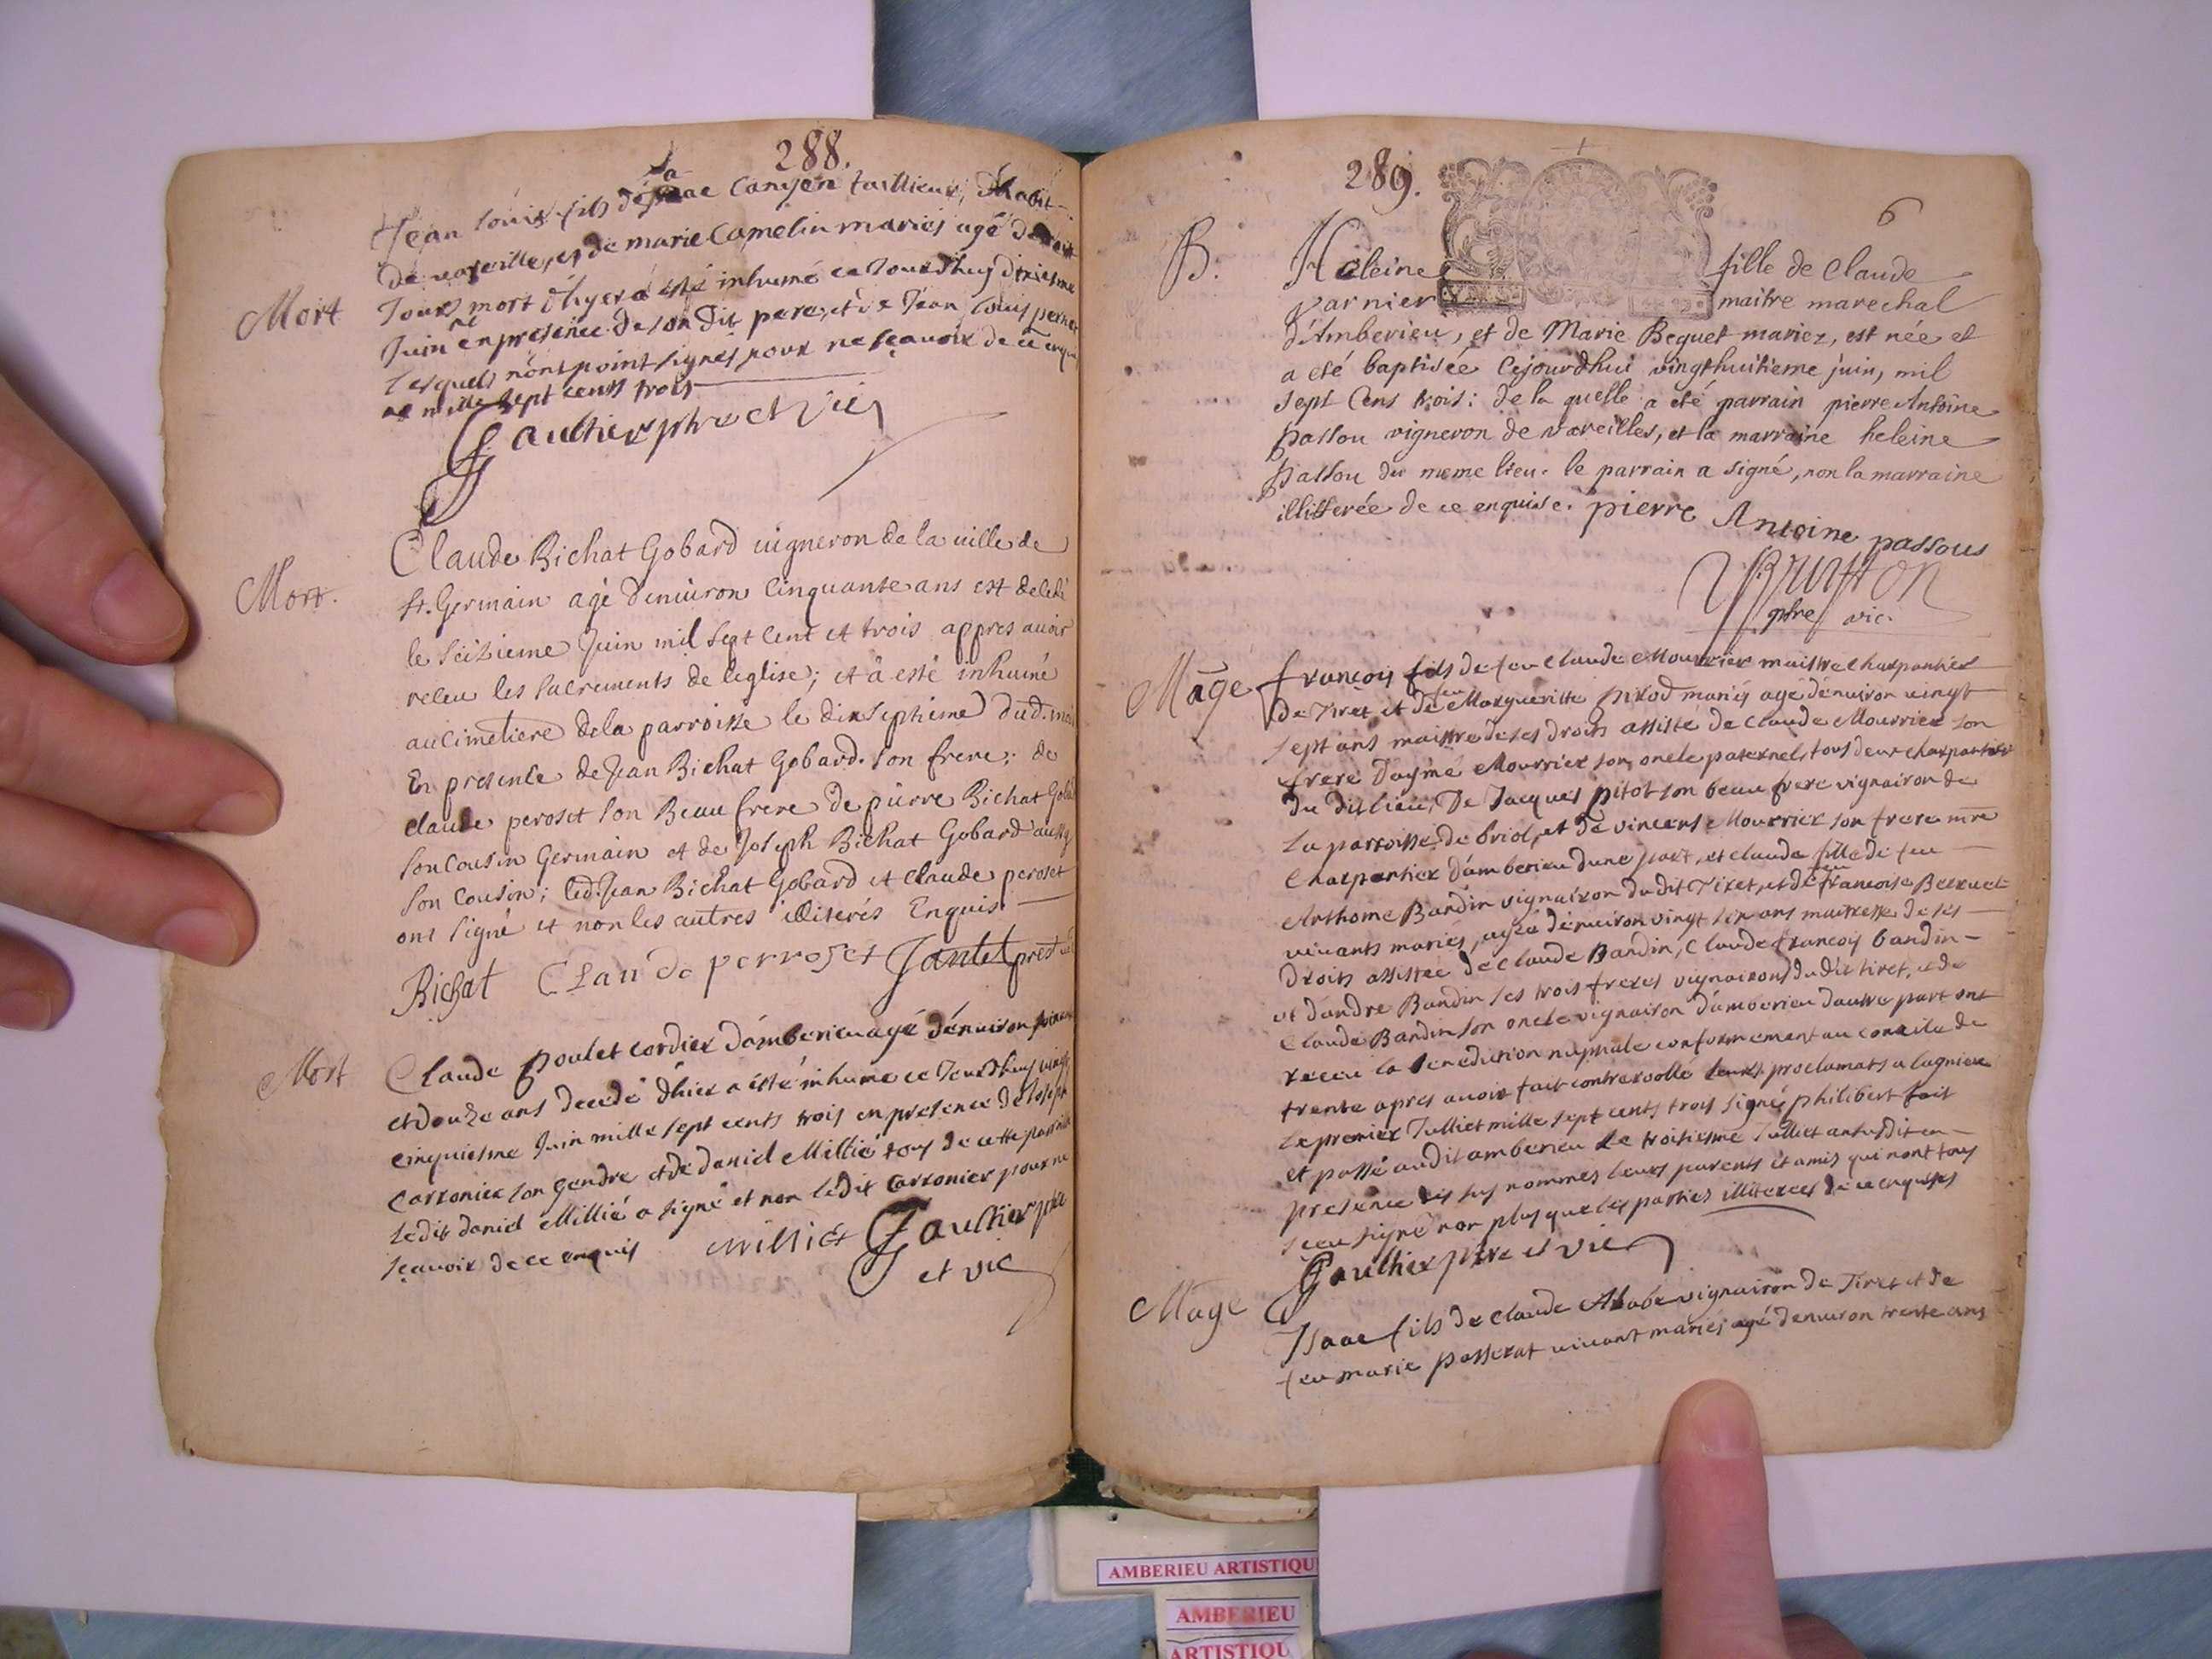 288.
Jean Louis fils de Isaac Canyere taillieur, Habit
de vareille, et de marie Camelin mariés agé de
Mort
Jours mort d'hyer a esté inhumé ce Jourdhuy dixiesme
Juin en presence de son dit pere, et de Jean Louis
lesquels n'ont point signes pour ne sçavoir de ce enquis
mille sept cents trois
Gaulthier ptre et vic
Mort.
Claude Bichat Gobard vigneron de la ville de
St. Germain agé denuiron Cinquante ans est decedé
le seizieme Juin mil sept Cent et trois appres avoir
receu les sacrements de leglise; et â esté inhumé
au cimetiere dela parroisse le dixseptieme dud. mois
En presence de Jean Bichat Gobard son frere; de
claude peroset son Beau frere de pierre Bichat Gobard
son cousin Germain et de Joseph Bichat Gobard aussy
son cousin; led. Jean Bichat Gobard et claude peroset
ont signé et non les autres illiterés Enquis
Bichat Claude perroset Jantet prest. vic
Mort
Claude poulet cordier damberieu agé dénuiron soixante
et douze ans decedé dhier a ésté inhumé ce Jourdhuy vingt
cinquiesme Juin mille sept cents trois en presence de Joseph
carronier son gendre et de daniel Millié tous de cette parroisse
ledit daniel Millié a signé et non ledit carronier pour ne
sçavoir de ce enquis Milliet Gaulthier ptre
et vic
289.
6
B.
Heleine fille de Claude
Varnier maitre marechal
d'Amberieu, et de Marie Beguet mariez, est née et
a eté baptisée Cejourdhui vingthuitieme juin, mil
sept Cens trois: de la quelle a eté parrain pierre Antoine
passou vigneron de vareilles, et la marraine heleine
passou du meme lieu. le parrain a signé, non la marraine
illitterée de ce enquise. pierre Antoine passous
Bruitton
ptre vic.
Mage
francois fils de feu Claude Mourrier maistre charpantier
de Tiret et de feu Margueritte pirod mariés agé dénuiron vingt
sept ans maistre de ses droits assisté de Claude Mourrier son
frere d'aymé Mourrier son oncle paternel, tous deux charpantiers
du dit lieu, De Jacques pitot son beau frere vignairon de
La parroisse de briol, et de vincent Mourrier son frere mre
charpantier d'amberieu dune part, et claude fille de feu
Anthome Bandin vignairon du dit Tiret, et de feu francoise Berruet
vivants mariés, agée dénuiron vingt six ans maitresse de ses
Droits assistée de Claude Bandin, Claude francois bandin
et dandre Bandin ses trois freres vignairons du dit tiret, et de
Claude Bandin son oncle vignairon d'amberieu dautre part ont
receu la benediction nuptiale conformement au concile de
trente apres avoir fait contreroolle leurs proclamats a lagnieu
le premier Julliet mille sept cents trois signés philibert fait
et passé audit amberieu le troisiesme Julliet an susdit en
presence des sus nommes leurs parents et amis qui nont tous
sceu signé non plus que les parties illiterees de ce enquises
Gaulthier ptre et vic
Mage
Isaac fils de claude Ababe vignairon de Tiret et de
feu marie passerat vivant mariés agé denuiron trente ans
AMBERIEU ARTISTIQU
AMBERIEU
ARTISTIQU